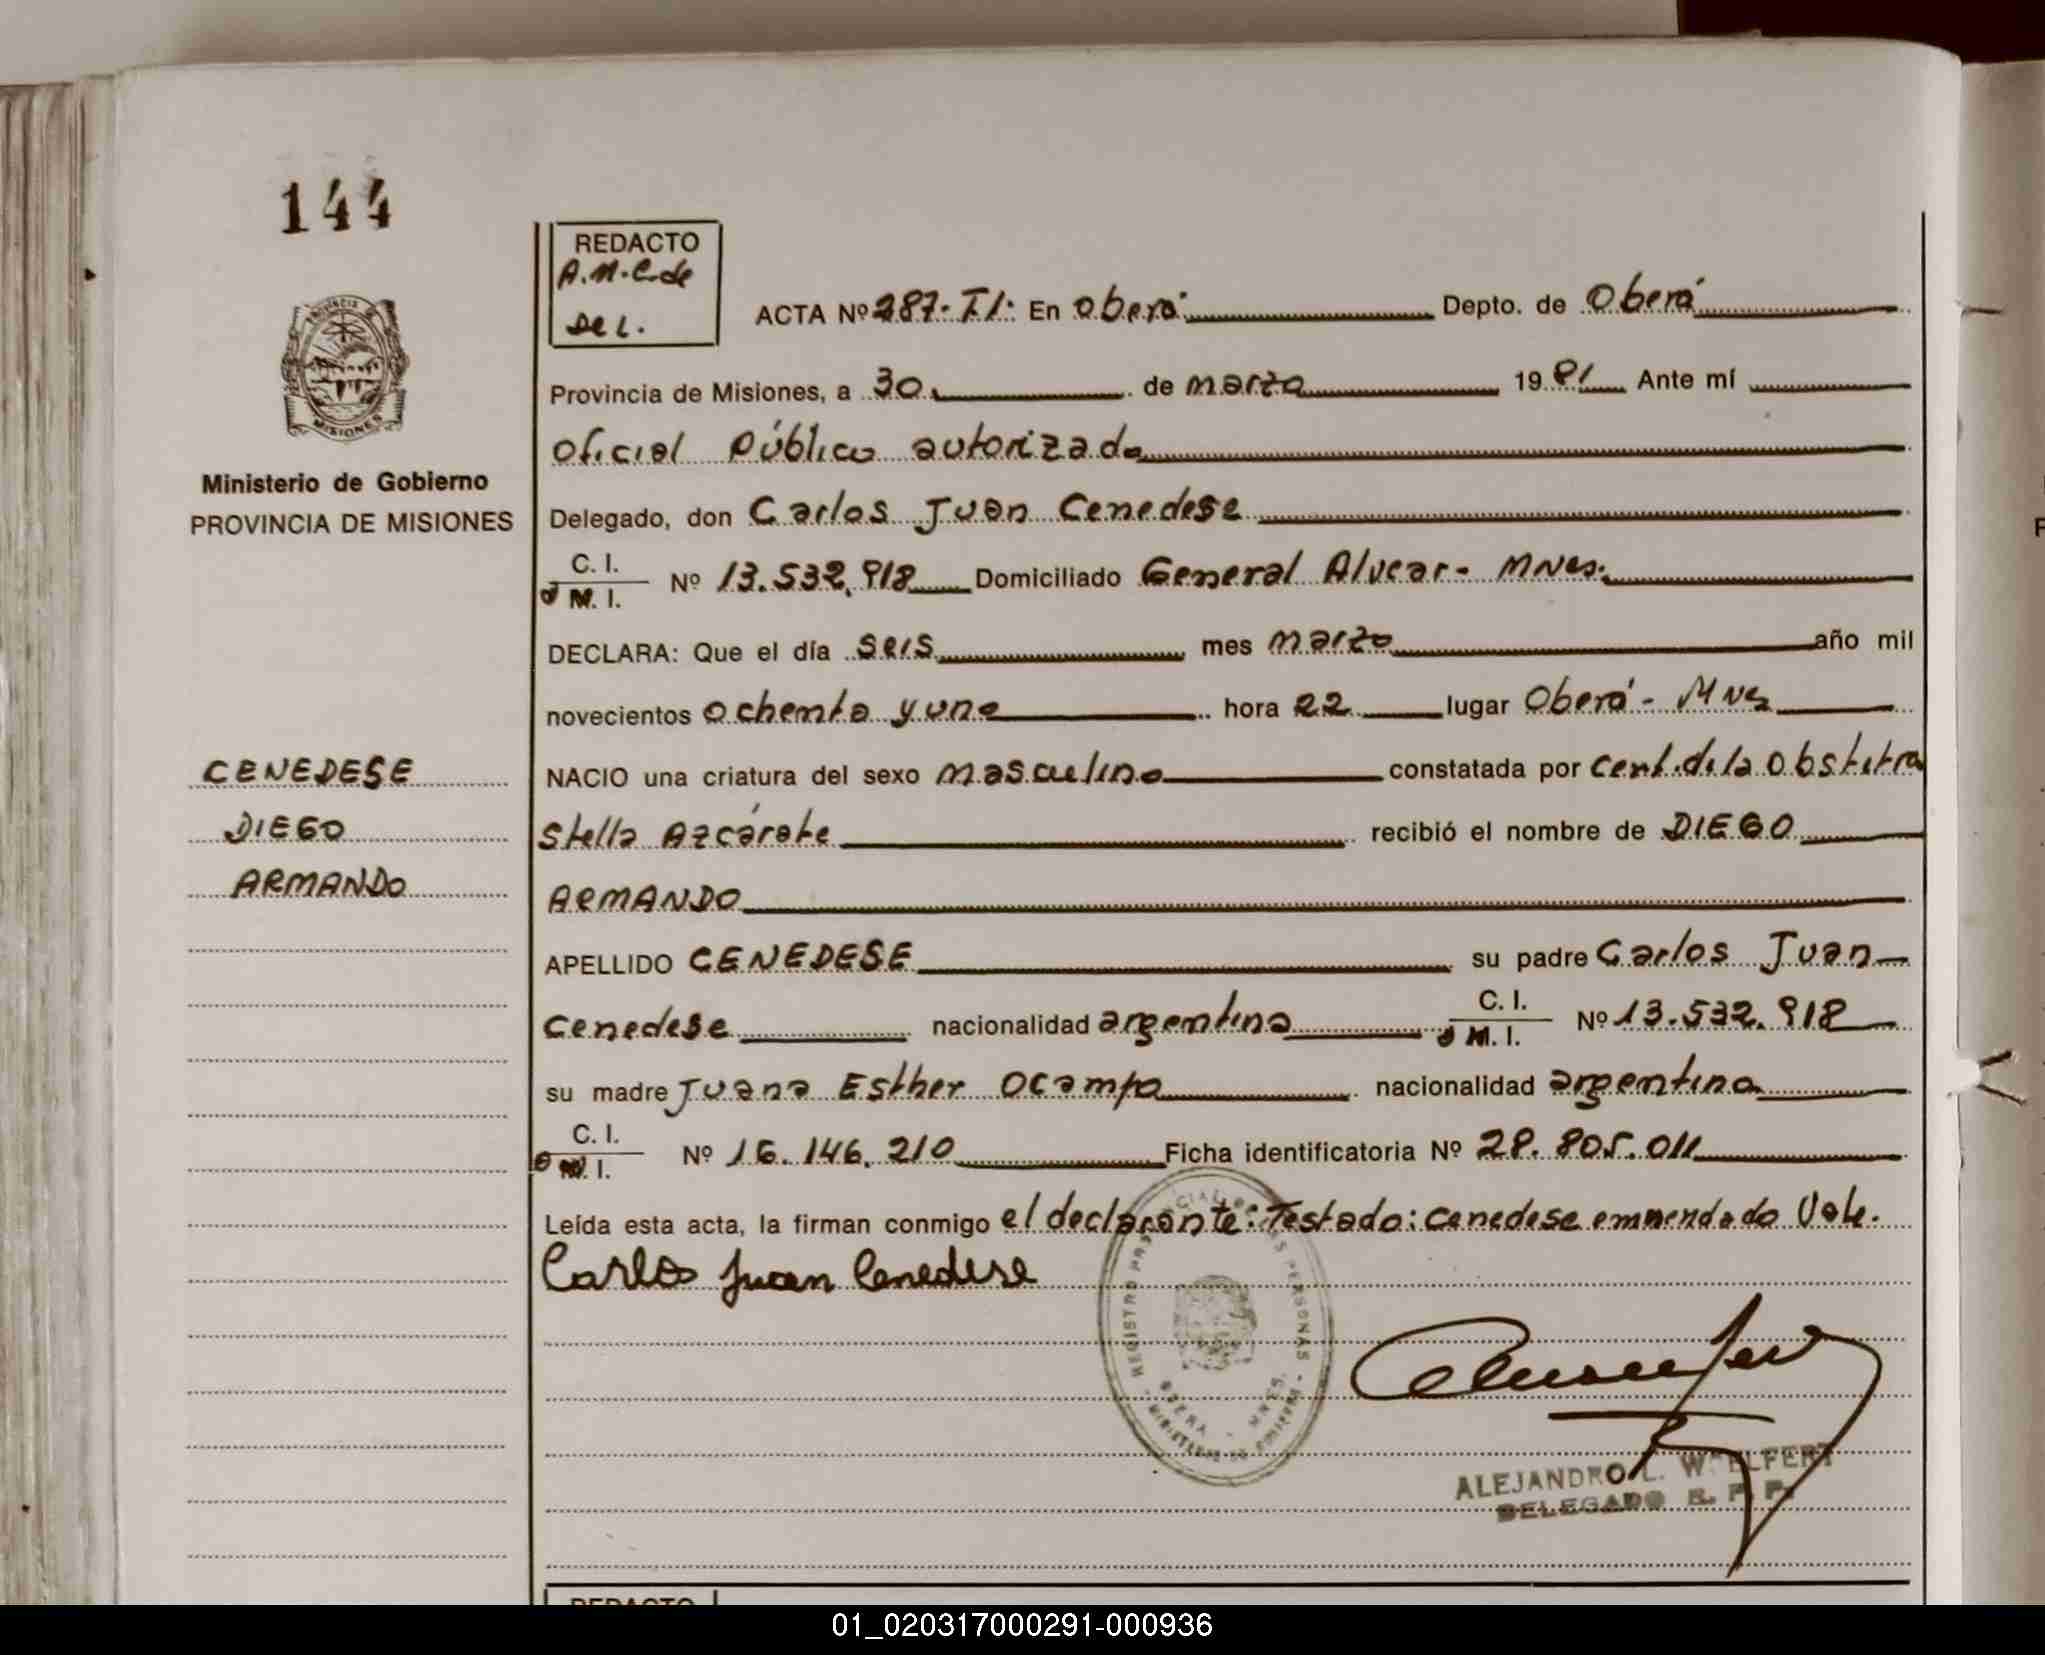 144
REDACTO
A.M.C. de
Del.
ACTA Nº 287-TI. En Oberá Depto. de Oberá
Provincia de Misiones, a 30 de marzo 1981 Ante mí
Oficial Público autorizado
Delegado, don Carlos Juan Cenedese
C. I.
M. I. Nº 13.532.918 Domiciliado General Alvear - Mnes.
DECLARA: Que el día seis mes marzo año mil
novecientos ochenta y uno hora 22 lugar Oberá - Mnes
NACIO una criatura del sexo masculino constatada por cert. de la obstetra
Stella Azcárate recibió el nombre de DIEGO
ARMANDO
APELLIDO CENEDESE su padre Carlos Juan
Cenedese nacionalidad argentina C. I.
M. I. Nº 13.532.918
su madre Juana Esther Ocampo nacionalidad argentina
C. I.
M. I. Nº 16.146.210 Ficha identificatoria Nº 28.805.011
Leída esta acta, la firman conmigo el declarante: Testado: cenedese enmendado Vale.
Carlos Juan Cenedese
Ministerio de Gobierno
PROVINCIA DE MISIONES
CENEDESE
DIEGO
ARMANDO
PROVINCIA
MISIONES
REGISTRO PERSONAS
OBERA - MNES.
ALEJANDRO L. WOELFERT
DELEGADO R. P. P.
REDACTO
01_020317000291-000936